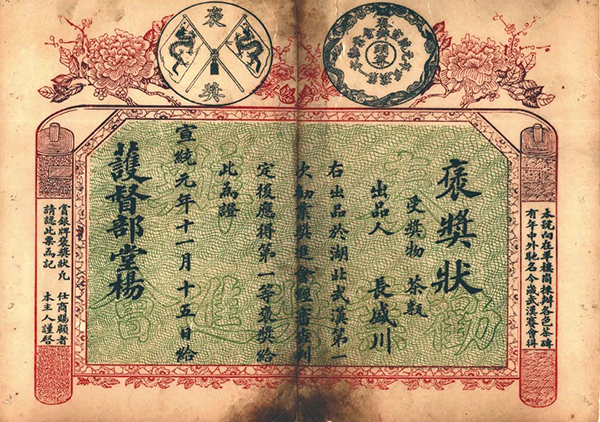 褒獎
褒獎狀
受獎物 茶甎
出品人 長盛川
右出品於湖北武漢第一
次勸業獎進會經審查判
定後應得第一等褒獎給
此為證
宣統元年十一月十五日給
護督部堂楊
本號向在羊樓峒揀辦各色茶磚
有年中外馳名今歲武漢賽會得
賞銀牌褒獎狀凡 仕商賜顧者
請認此票為記 本主人謹啓